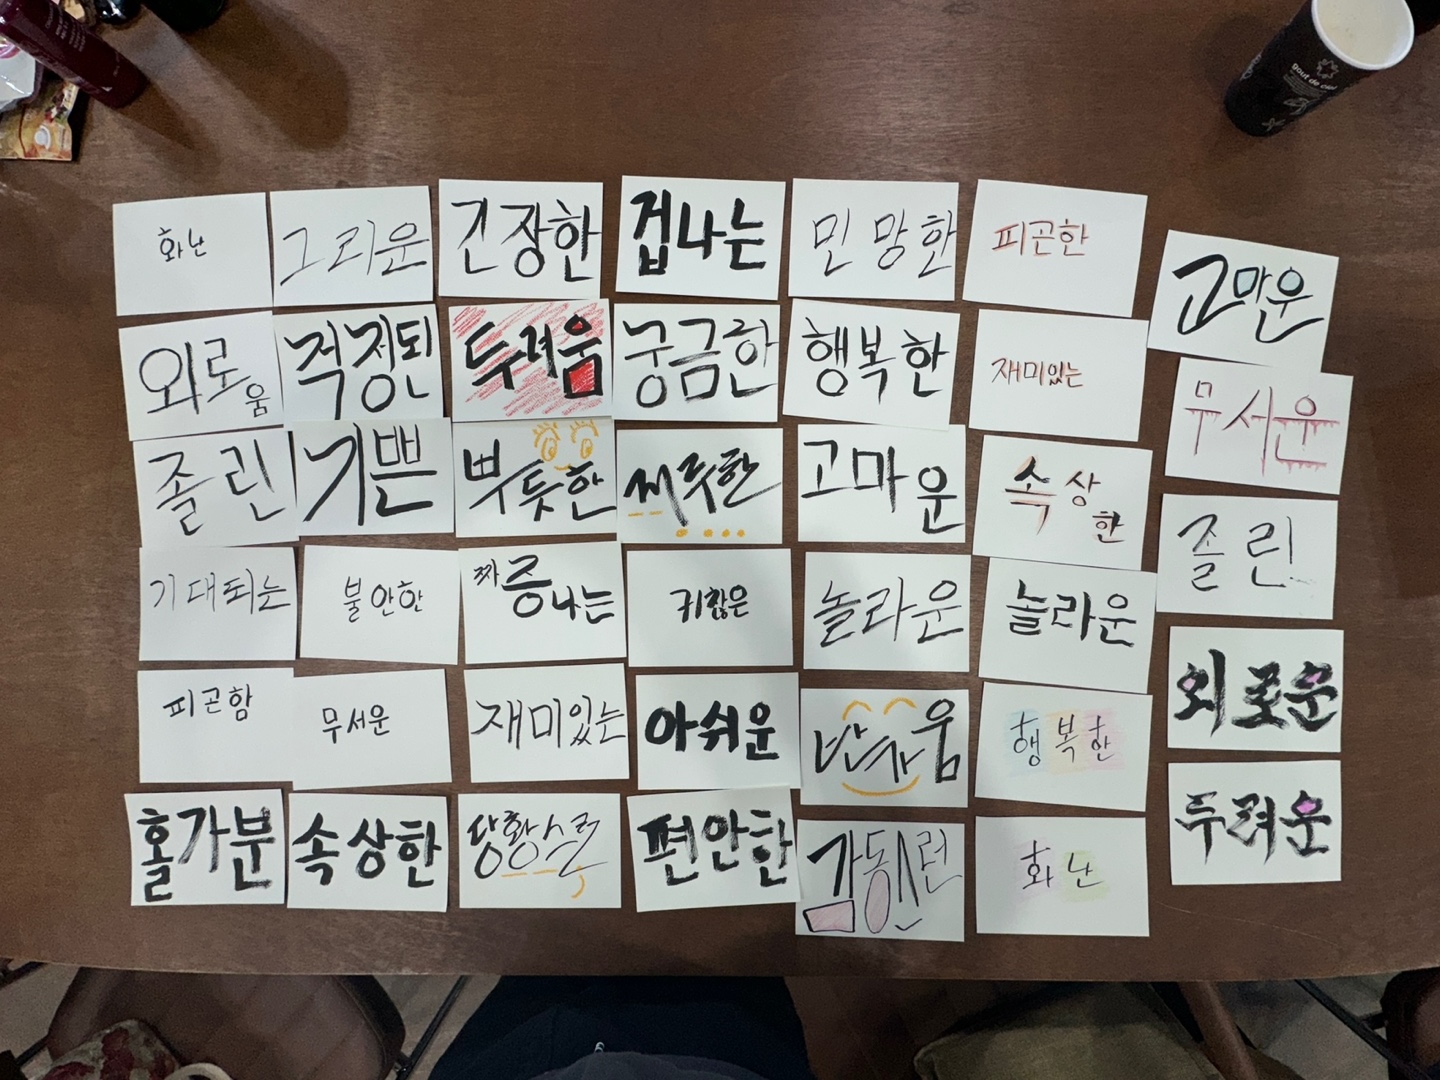 화난
그리운
긴장한
겁나는
민망한
피곤한
고마운
외로움
걱정된
두려움
궁금한
행복한
재미있는
무서운
졸린
기쁜
뿌듯한
찌뿌둥한
고마운
속상한
졸린
기대되는
불안한
짜증나는
귀찮은
놀라운
놀라운
외로운
피곤함
무서운
재미있는
아쉬운
반가움
행복한
두려운
홀가분
속상한
당황스런
편안한
감동스런
화난
gout de ciel